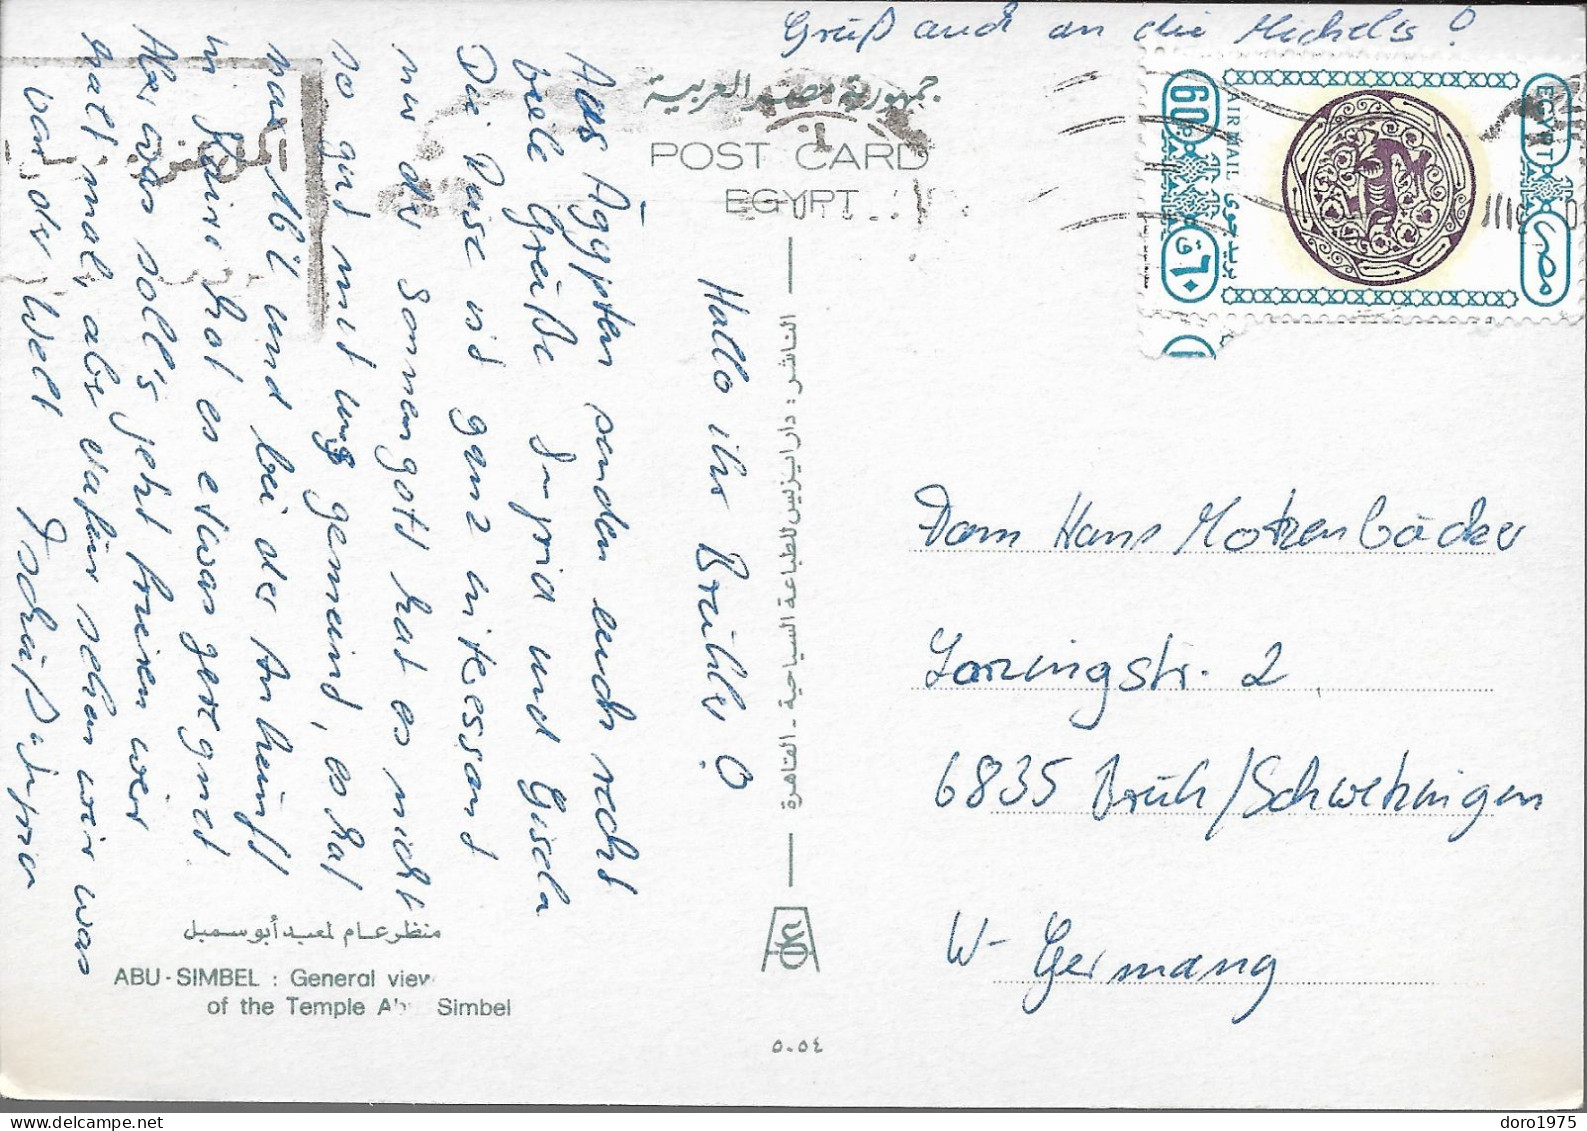 Gruß auch an die Michels!
جمهورية مصر العربية
POST CARD
EGYPT
60
AIR MAIL
بريد جوى
٦٠
EGYPT
مصر
Hallo ihr Brühler!
Aus Ägypten senden euch recht
viele Grüße Ingrid und Gisela
Die Reise ist ganz interessant
nur der Sonnengott hat es nicht
so gut mit uns gemeint, es hat
nur 16° und bei der Ankunft
in Kairo hat es etwas geregnet
Aber was soll's jetzt frieren wir
halt mal, aber dafür sehen wir was
von der Welt
Tschüß
الناشر : دار ايزيس للطباعة السياحية - القاهرة
Fam Hans Motzenbäcker
Lanzingstr. 2
6835 Brühl/Schwetzingen
W-Germany
منظر عام لمعبد أبو سمبل
ABU-SIMBEL : General view
of the Temple Abu Simbel
٥٠٥٤
doro1975